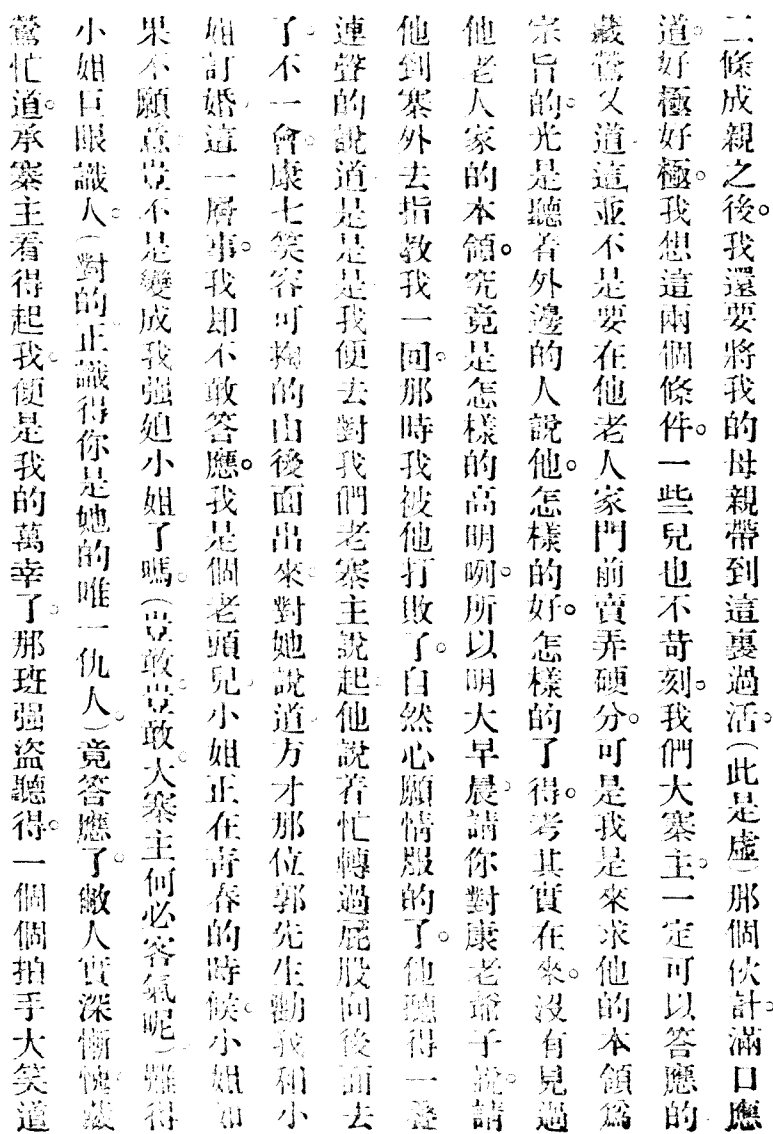 二條成親之後。我還要將我的母親帶到這裏過活。(此是虛)那個伙計。滿口應
道。好極好極。我想這兩個條件。一些兒也不苛刻。我們大寨主。一定可以答應的
葳鶯又道。這並不是要在他老人家門前賣弄硬分。可是我是來求他的本領爲
宗旨的。光是聽着外邊的人說他。怎樣的好。怎樣的了得。考其實在來。沒有見過
他老人家的本領。究竟是怎樣的高明咧。所以明大早晨。請你對康老爺子說。請
他到寨外去指教我一回。那時我被他打敗了。自然心願情服的了。他聽得一疊
連聲的說道。是是是。我便去對我們老寨主說起。他說着忙轉過屁股向後面去
了。不一會。康七笑容可掬的由後面出來。對她說道。方才那位郭先生勸我和小
姐訂婚。這一層事。我却不敢答應。我是個老頭兒。小姐正在青春的時候。小姐如
果不願意。豈不是變成我强廹小姐了嗎。(豈敢豈敢。大寨主何必客氣呢)難得
小姐巨眼識人。(對的正識得你是她的唯一仇人)。竟答應了。敝人實深慚愧。葳
鶯忙道。承寨主看得起我。便是我的萬幸了。那班强盜聽得。一個個拍手大笑道